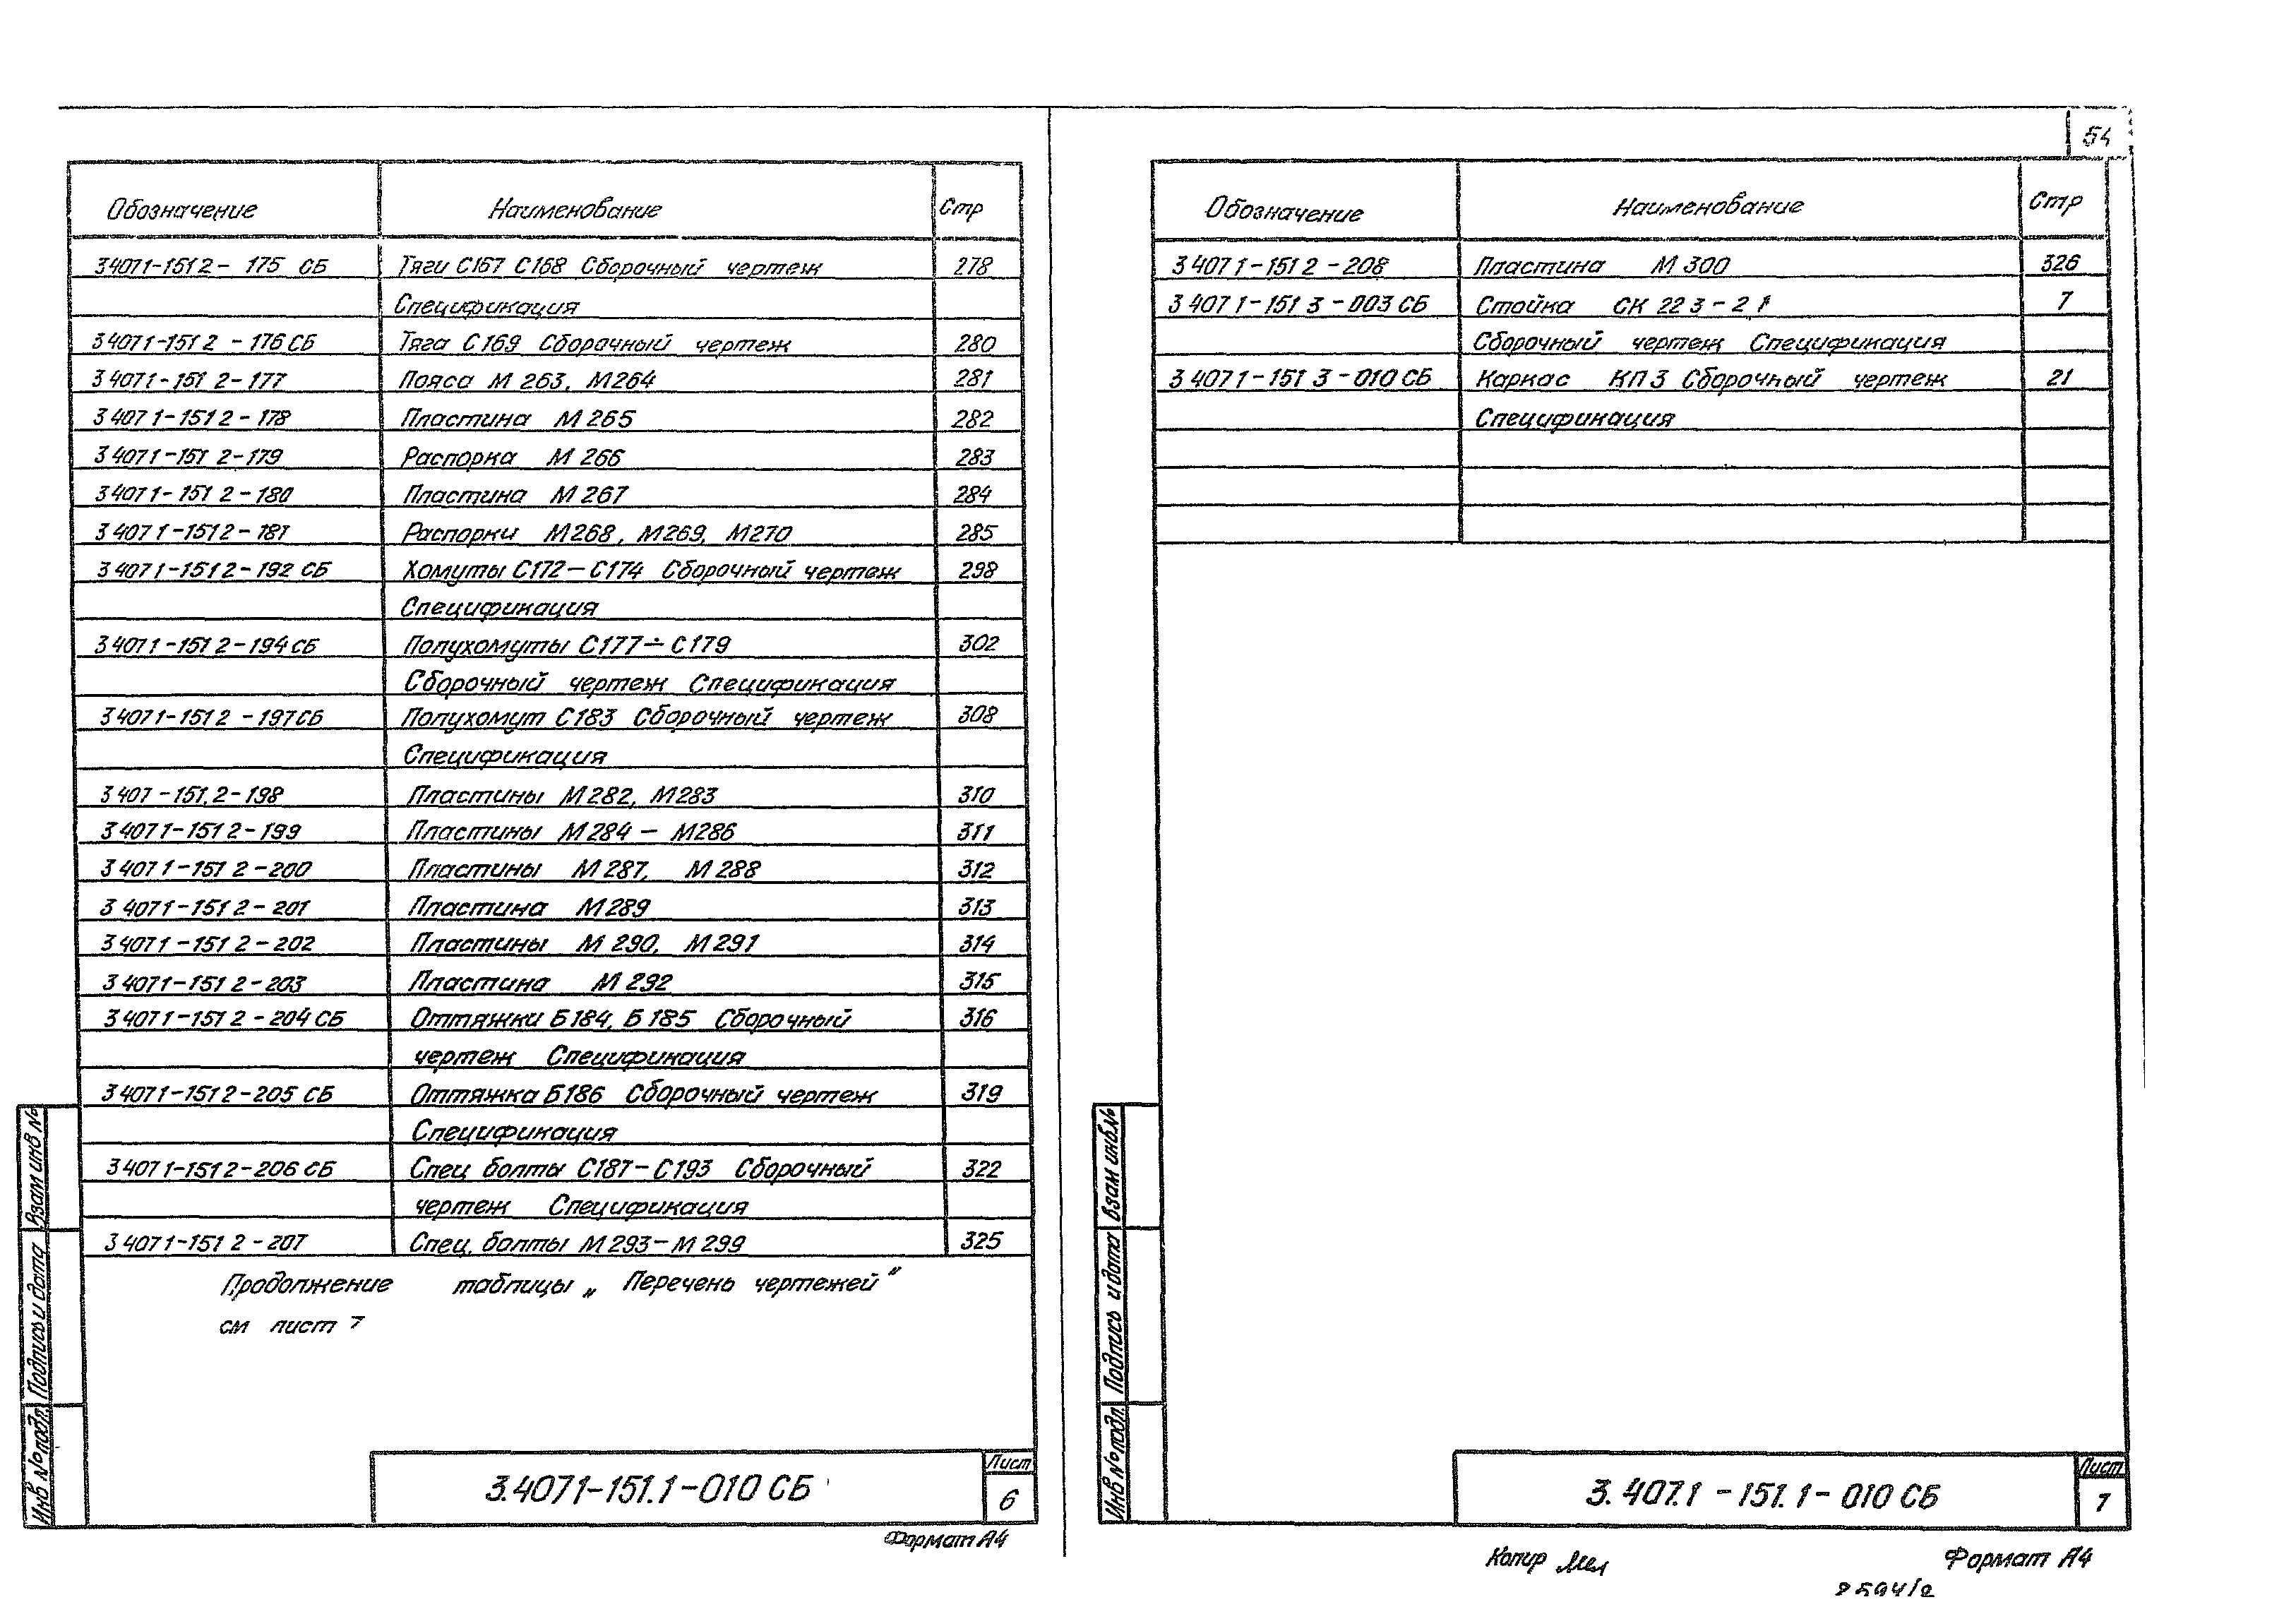 Обозначение Наименование Стр
3 4071-151 2- 175 СБ Тяги С167 С168 Сборочный чертеж 278
Спецификация
3 4071-151 2 - 176 СБ Тяга С169 Сборочный чертеж 280
3 4071-151 2-177 Пояса М 263, М264 281
3 407 1-151 2-178 Пластина М 265 282
3 4071-151 2-179 Распорка М 266 283
3 4071-151 2-180 Пластина М 267 284
3 407 1-151 2-181 Распорки М268, М269, М270 285
3 407 1-151 2-192 СБ Хомуты С172-С174 Сборочный чертеж 298
Спецификация
3 4071-151 2-194 СБ Полухомуты С177÷С179 302
Сборочный чертеж Спецификация
3 4071-151 2 -197 СБ Полухомут С183 Сборочный чертеж 308
Спецификация
3 407 -151.2-198 Пластины М 282, М283 310
3 4071-151 2-199 Пластины М 284 - М286 311
3 407 1-151 2-200 Пластины М 287, М 288 312
3 4071-151 2-201 Пластина М289 313
3 4071-151 2-202 Пластины М 290, М 291 314
3 4071-151 2-203 Пластина М 292 315
3 4071-151 2-204 СБ Оттяжки Б184, Б 185 Сборочный 316
чертеж Спецификация
3 4071-151 2-205 СБ Оттяжка Б186 Сборочный чертеж 319
Спецификация
3 4071-151 2-206 СБ Спец болты С187-С193 Сборочный 322
чертеж Спецификация
3 4071-151 2-207 Спец. болты М 293-М 299 325
Продолжение таблицы „ Перечень чертежей "
см лист 7
Взам инв №
Подпись и дата
Инв № подл.
3.4071-151.1-010 СБ
Лист
6
Формат А4
54
Обозначение Наименование Стр
3 407 1-151 2-208 Пластина М 300 326
3 407 1-151 3-003 СБ Стойка СК 22 3-2 1 7
Сборочный чертеж Спецификация
3 4071-151 3-010 СБ Каркас КП 3 Сборочный чертеж 21
Спецификация
Взам инв.№
Подпись и дата
Инв № подл.
3. 407.1 -151. 1- 010 СБ
Лист
7
Копир
Формат А4